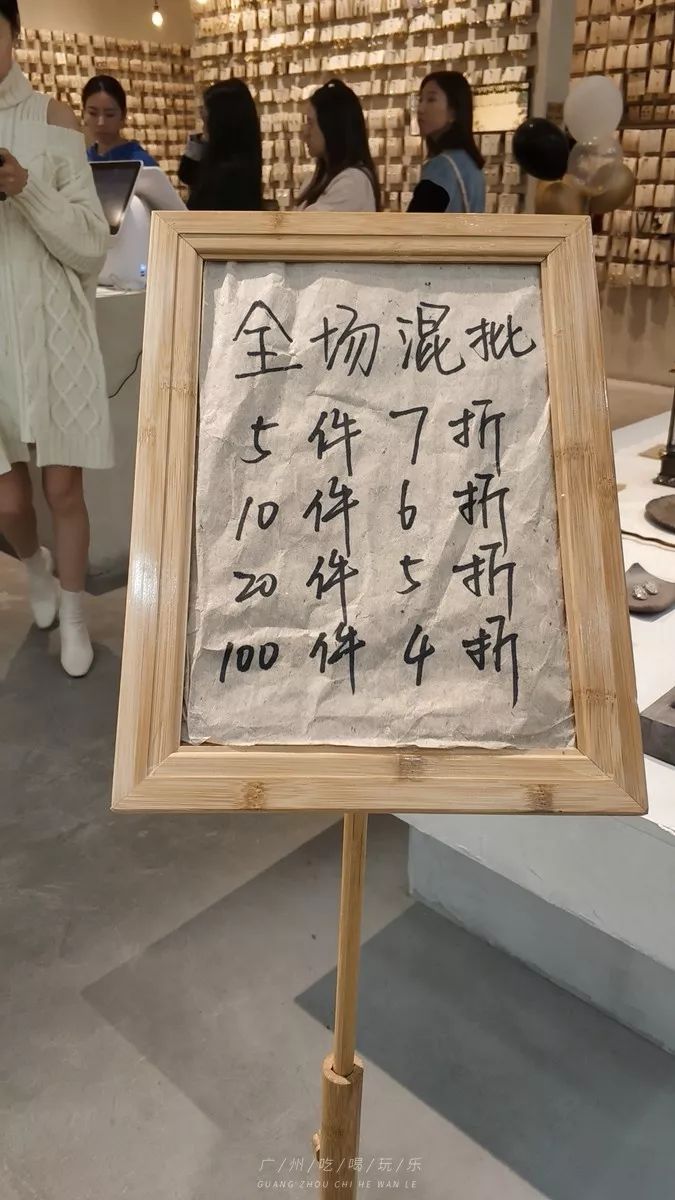 全场混批
5件7折
10件6折
20件5折
100件4折
广/州/吃/喝/玩/乐
GUANG ZHOU CHI HE WAN LE